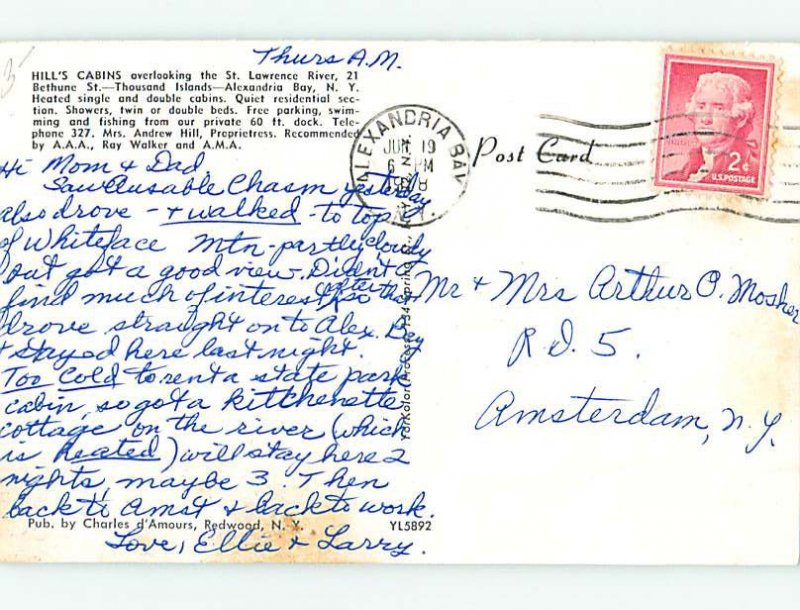 Thurs A.M.
HILL'S CABINS overlooking the St. Lawrence River, 21
Bethune St.—Thousand Islands—Alexandria Bay, N. Y.
Heated single and double cabins. Quiet residential sec-
tion. Showers, twin or double beds. Free parking, swim-
ming and fishing from our private 60 ft. dock. Tele-
phone 327. Mrs. Andrew Hill, Proprietress. Recommended
by A.A.A., Ray Walker and A.M.A.
Hi Mom & Dad
Saw Ausable Chasm yesterday
also drove - & walked - to top
of Whiteface Mtn - partly cloudy
but got a good view. Didn't
find much of interest after that so
drove straight on to Alex. Bay
& stayed here last night.
Too cold to rent a state park
cabin, so got a kitchenette
cottage on the river (which
is heated) will stay here 2
nights, maybe 3. Then
back to Amst & back to work.
Love, Ellie & Larry.
Pub. by Charles d'Amours, Redwood, N. Y. YL5892
ALEXANDRIA BAY
JUN 19
6 PM
N.Y.
Post Card
2¢
U.S. POSTAGE
Mr & Mrs Arthur P. Mosher
R.D. 5.
Amsterdam, N.Y.